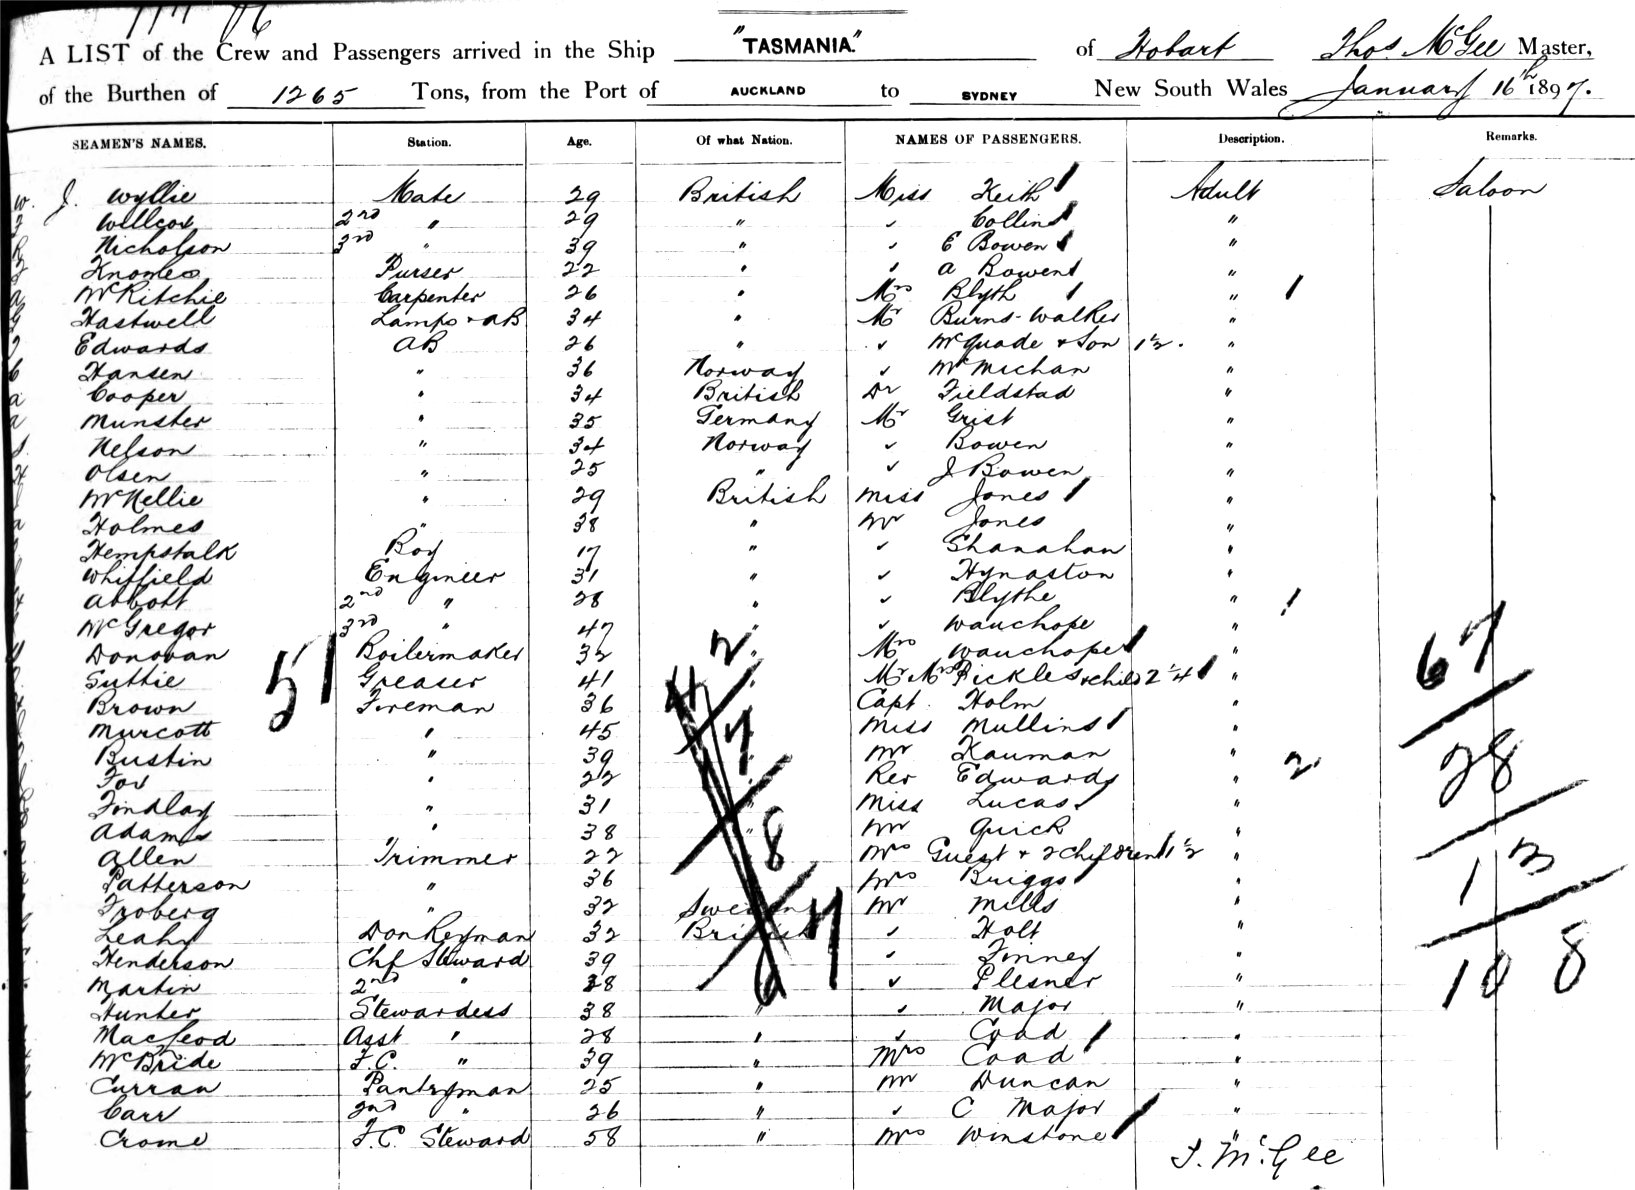 A LIST of the Crew and Passengers arrived in the Ship "TASMANIA." of Hobart Thos. McGee Master,
of the Burthen of 1265 Tons, from the Port of AUCKLAND to SYDNEY New South Wales January 16th 1897.
SEAMEN'S NAMES. Station. Age. Of what Nation. NAMES OF PASSENGERS. Description. Remarks.
W. J. Wyllie Mate 29 British Miss Keith Adult Saloon
Willcox 2nd " 29 " " Collins "
Nicholson 3rd " 39 " " E Bowen "
Knowles Purser 22 " " A Bowen "
McRitchie Carpenter 26 " Mrs Blyth " 1
Hastwell Lamps & AB 34 " Mr Burns-Walker "
Edwards AB 26 " " McQuade & Son 1½. "
Hansen " 36 Norway " McMichan "
Cooper " 34 British Dr Fieldstad "
Munster " 35 Germany Mr Grist "
Nelson " 34 Norway " Bowen "
Olsen " 25 " " J Bowen "
McNellie " 29 British Miss Jones "
Holmes " 38 " Mr Jones "
Hempstalk Boy 17 " " Shanahan "
Whiffield Engineer 31 " " Hynaston "
Abbott 2nd " 28 " " Blythe " 1
McGregor 3rd " 47 " " Wauchope "
Donovan Boilermaker 32 " Mrs Wauchope "
Suttie Greaser 41 " Mr & Mrs Pickles & child 2 ¼ "
Brown Fireman 36 " Capt. Holm "
Murcott " 45 " Miss Mullins "
Bustin " 39 " Mr Kauman "
Fox " 22 " Rev Edwards " 2
Findlay " 31 " Miss Lucas "
Adams " 38 " Mr Quick "
Allen Trimmer 22 " Mrs Guest & 2 children 1½ "
Patterson " 36 " Mrs Briggs "
Froberg " 32 Sweden Mr Mills "
Leahy Donkeyman 32 British " Holt "
Henderson Chf Steward 39 " " Finney "
Martin 2nd " 28 " " Plesner "
Hunter Stewardess 38 " " Major "
Macleod Asst " 28 " " Coad "
McBride F.C. " 39 " Mrs Coad "
Curran Pantryman 25 " Mr Duncan "
Carr 2nd " 26 " " C Major "
Crome F.C. Steward 58 " Mrs Winstone "
T. McGee
51
67
28
13
10 8